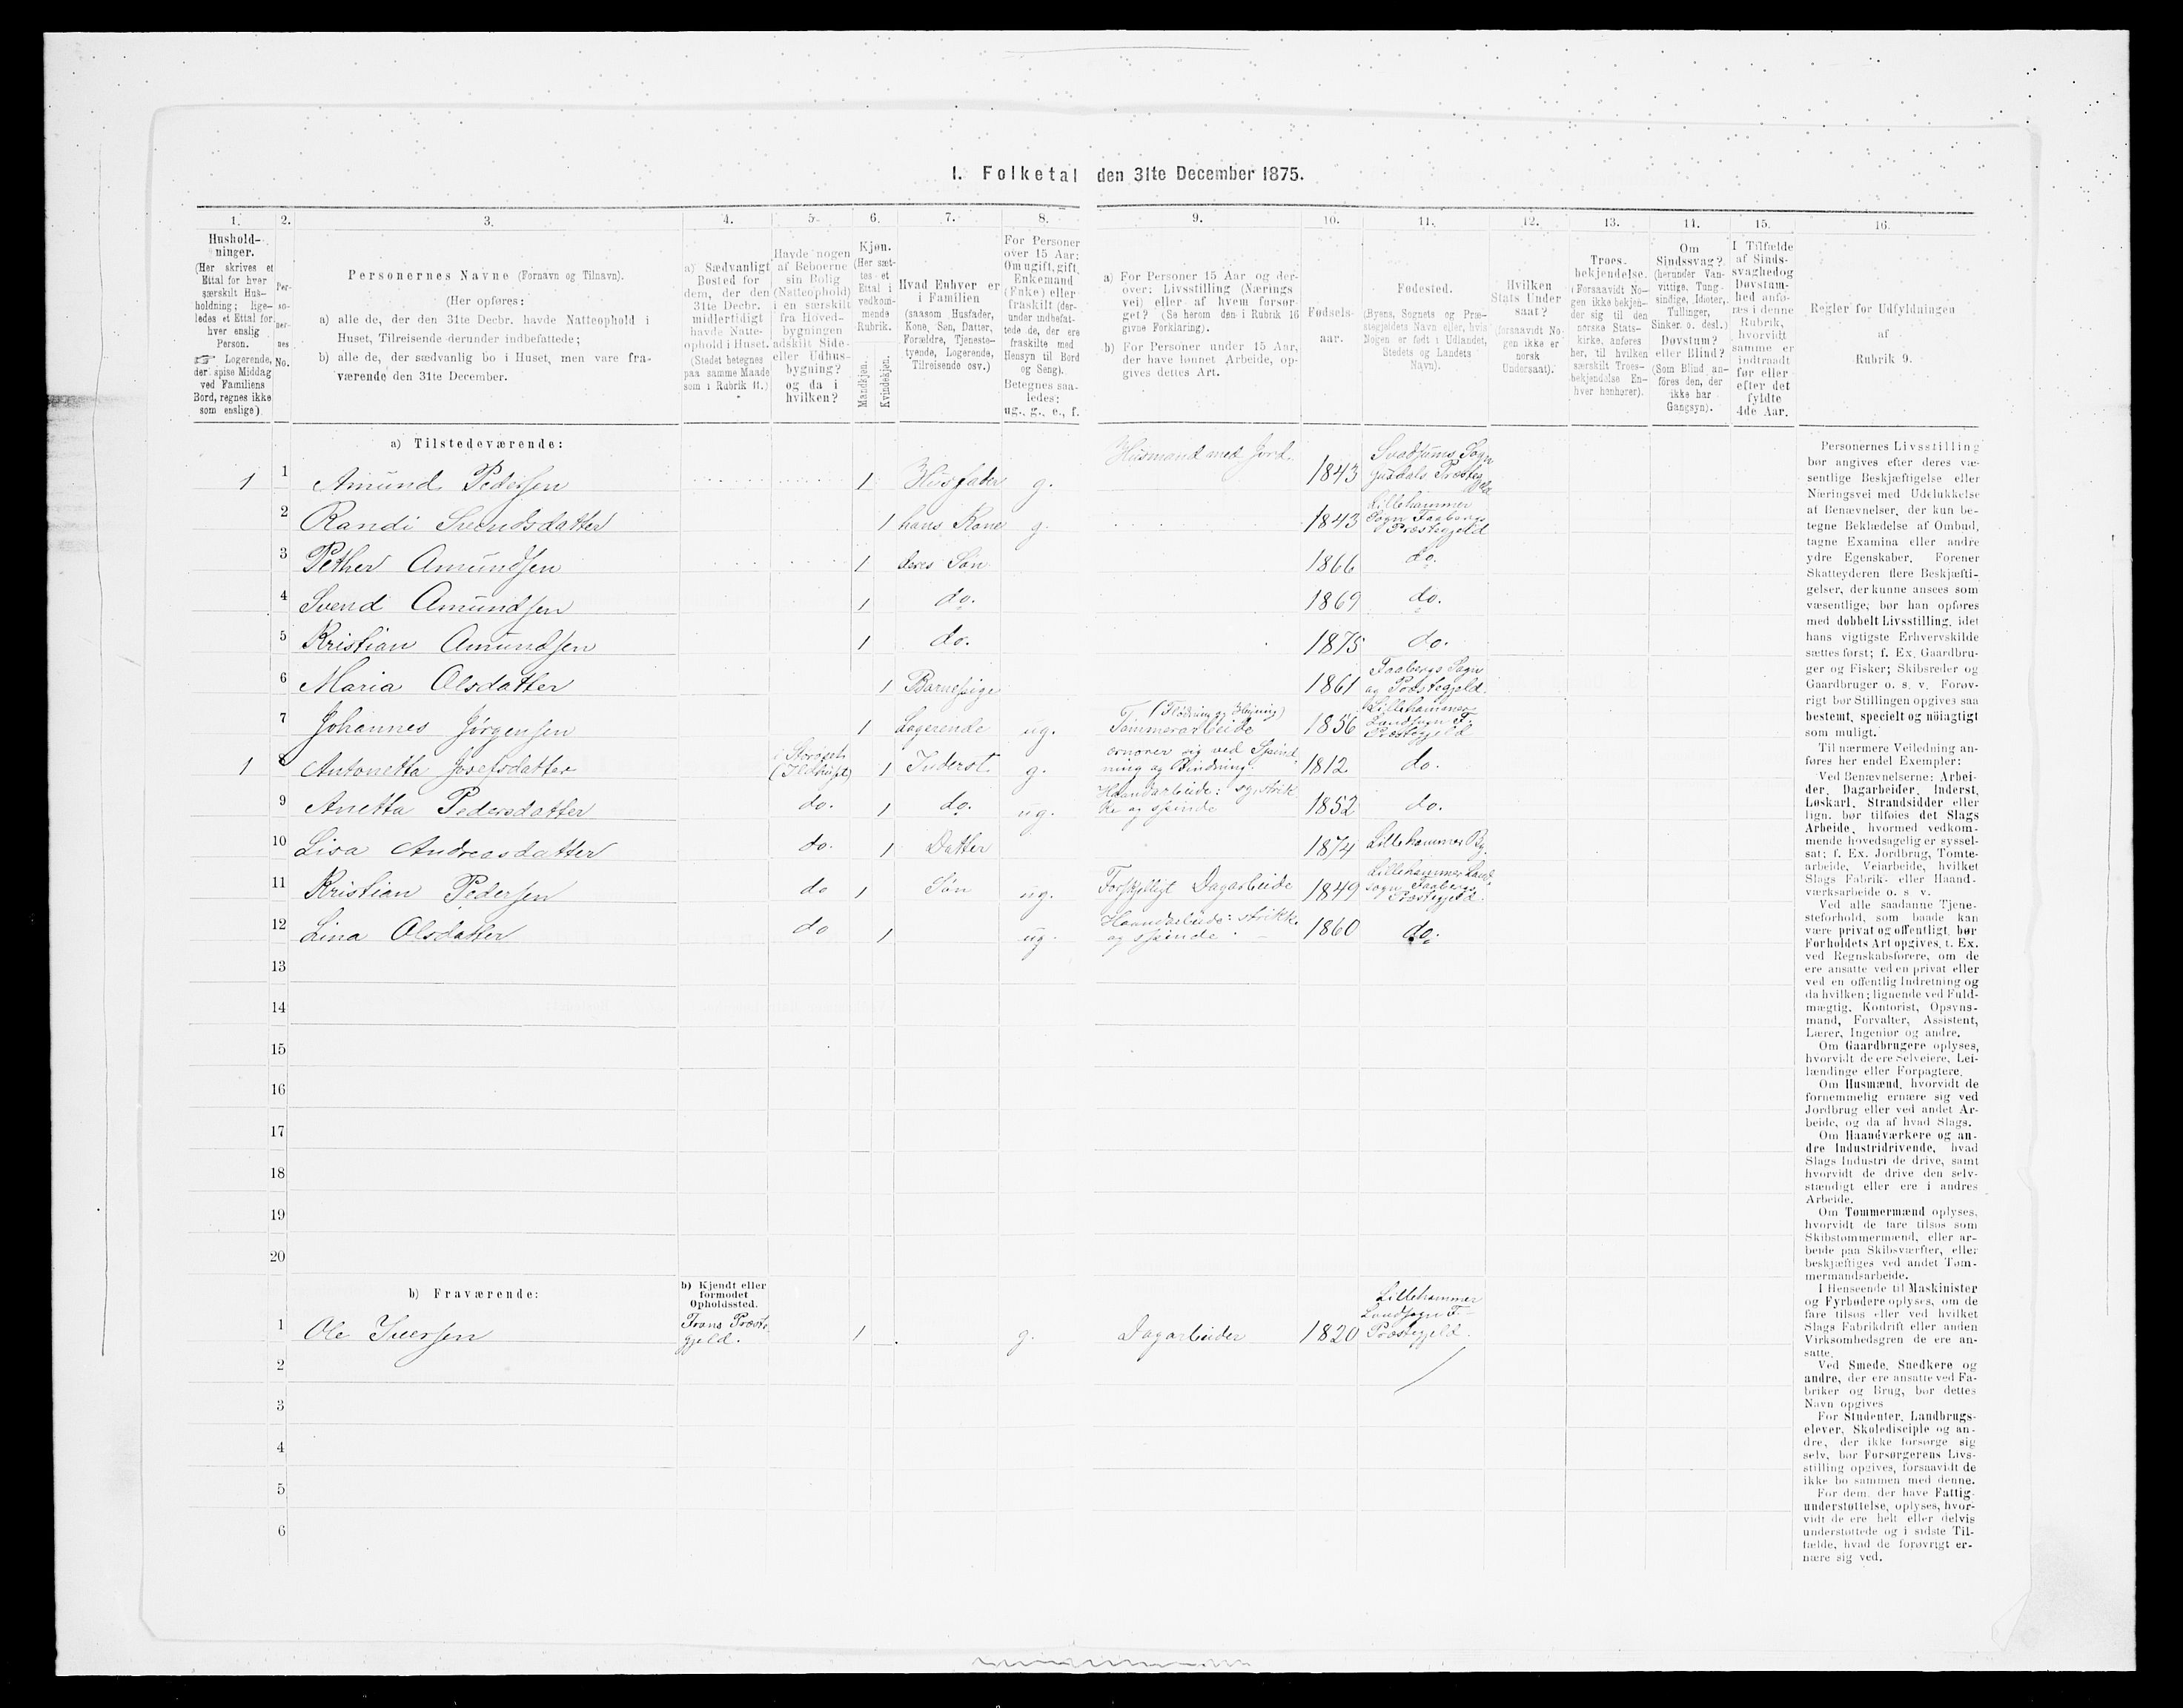 I. Folketal den 31te December 1875.
1. 2. 3. 4. 5. 6. 7. 8. 9. 10. 11. 12. 13. 14. 15. 16.
Hushold-
ninger.
(Her skrives et
Ettal for hver
særskilt Hus-
holdning; lige-
ledes et Ettal for
hver enslig
Person.
☞ Logerende,
der spise Middag
ved Familiens
Bord, regnes ikke
som enslige).
Per-
so-
ner-
nes
No.
Personernes Navne (Fornavn og Tilnavn).
(Her opføres:
a) alle de, der den 31te Decbr. havde Natteophold i
Huset, Tilreisende derunder indbefattede;
b) alle de, der sædvanlig bo i Huset, men vare fra-
værende den 31te December.
a) Sædvanligt
Bosted for
dem, der den
31te Decbr.
midlertidigt
havde Natte-
ophold i Huset.
(Stedet betegnes
paa samme Maade
som i Rubrik 11.)
Havde nogen
af Beboerne
sin Bolig
(Natteophold)
i en særskilt
fra Hoved-
bygningen
adskilt Side-
eller Udhus-
bygning?
og da i
hvilken?
Kjøn.
(Her sæt-
tes et
Ettal i
vedkom-
mende
Rubrik.
Mandkjøn.
Kvindekjøn.
Hvad Enhver er
i Familien
(saasom Husfader,
Kone, Søn, Datter,
Forældre, Tjeneste-
tyende, Logerende,
Tilreisende osv.)
For Personer
over 15 Aar:
Om ugift, gift,
Enkemand
(Enke) eller
fraskilt (der-
under indbefat-
tede de, der ere
fraskilte med
Hensyn til Bord
og Seng).
Betegnes saa-
ledes:
ug., g., e., f.
a) For Personer 15 Aar og der-
over: Livsstilling (Nærings
vei) eller af hvem forsør-
get? (Se herom den i Rubrik 16
givne Forklaring).
b) For Personer under 15 Aar,
der have lønnet Arbeide, op-
gives dettes Art.
Fødsels-
aar.
Fødested.
(Byens, Sognets og Præ-
stegjeldets Navn eller, hvis
Nogen er født i Udlandet,
Stedets og Landets
Navn).
Hvilken
Stats Under
saat?
(forsaavidt No-
gen ikke er
norsk
Undersaat).
Troes-
bekjendelse.
(Forsaavidt No-
gen ikke bekjen-
der sig til den
norske Stats-
kirke, anføres
her, til hvilken
særskilt Troes-
bekjendelse En-
hver henhører).
Om
Sindssvag?
(herunder Van-
vittige, Tung-
sindige, Idioter,
Tullinger,
Sinker o. desl.)
Døvstum?
eller Blind?
(Som Blind an-
føres den, der
ikke har
Gangsyn).
I Tilfælde
af Sinds-
svaghed og
Døvstum-
hed anfø-
res i denne
Rubrik,
hvorvidt
samme er
indtraadt
før eller
efter det
fyldte
4de Aar.
Regler for Udfyldningen
af
Rubrik 9.
a) Tilstedeværende:
1 1 Amund Pedersen 1 Husfader g. Husmand med Jord. 1843 Svadsums Sogn
Gusdals Præsteg
2 Randi Svendsdatter 1 hans Kone g. 1843 Lillehammer
Sogn Faabergs
Præstegjeld
3 Pether Amundsen 1 deres Søn 1866 do.
4 Svend Amundsen 1 do. 1869 do.
5 Kristian Amundsen 1 do. 1875 do.
6 Maria Olsdatter 1 Barnepige 1861 Faabergs Sogn
og Præstegjeld.
7 Johannes Jørgensen 1 Logerende ug. Tømmerarbeide 1856 Lillehammer
Landsogn F.
Præstegjeld
1 8 Antonetta Josefsdatter 1 Inderst. g. ernærer sig ved Spind-
ning og Binding. 1812 do.
9 Anetta Pedersdatter do. 1 do. ug. Haandarbeide: sy, strik-
ke og spinde 1852 do.
10 Lisa Andreasdatter do. 1 Datter 1874 Lillehammer By.
11 Kristian Pedersen do 1 Søn ug. Forskjelligt Dagarbeide 1849 Lillehammer Land-
sogn Faabergs
Præstegjeld.
12 Lina Olsdatter do 1 ug. Haandarbeide: strikke
og spinde. 1860 do.
13
14
15
16
17
18
19
20
b) Fraværende:
b) Kjendt eller
formodet
Opholdssted.
1 Ole Iversen Trons Præste-
gjeld. 1 g. Dagarbeider 1820 Lillehammer
Landsogn F.
Præstegjeld.
2
3
4
5
6
Personernes Livsstilling
bør angives efter deres væ-
sentlige Beskjæftigelse eller
Næringsvei med Udelukkelse
af Benævnelser, der kun be-
tegne Beklædelse af Ombud,
tagne Examina eller andre
ydre Egenskaber. Forener
Skatteyderen flere Beskjæfti-
gelser, der kunne ansees som
væsentlige, bør han opføres
med dobbelt Livsstilling, idet
hans vigtigste Erhvervskilde
sættes først; f. Ex. Gaardbru-
ger og Fisker; Skibsreder og
Gaardbruger o. s. v. Forøv-
rigt bør Stillingen opgives saa
bestemt, specielt og nøiagtigt
som muligt.
Til nærmere Veiledning an-
føres her endel Exempler:
Ved Benævnelserne: Arbei-
der, Dagarbeider, Inderst,
Løskarl, Strandsidder eller
lign. bør tilføies det Slags
Arbeide, hvormed vedkom-
mende hovedsagelig er syssel-
sat; f. Ex. Jordbrug, Tomte-
arbeide, Veiarbeide, hvilket
Slags Fabrik- eller Haand-
værksarbeide o. s. v.
Ved alle saadanne Tjene-
steforhold, som baade kan
være privat og offentligt, bør
Forholdets Art opgives, t. Ex.
ved Regnskabsførere, om de
ere ansatte ved en privat eller
ved en offentlig Indretning og
da hvilken; lignende ved Fuld-
mægtig, Kontorist, Opsyns-
mand, Forvalter, Assistent,
Lærer, Ingeniør og andre.
Om Gaardbrugere oplyses,
hvorvidt de ere Selveiere, Lei-
lændinge eller Forpagtere.
Om Husmænd, hvorvidt de
fornemmelig ernære sig ved
Jordbrug eller ved andet Ar-
beide, og da af hvad Slags.
Om Haandværkere og an-
dre Industridrivende, hvad
Slags Industri de drive, samt
hvorvidt de drive den selv-
stændigt eller ere i andres
Arbeide.
Om Tømmermænd oplyses,
hvorvidt de fare tilsøs som
Skibstømmermænd, eller ar-
beide paa Skibsværfter, eller
beskjæftiges ved andet Tøm-
mermandsarbeide.
I Henseende til Maskinister
og Fyrbødere oplyses, om de
fare tilsøs eller ved hvilket
Slags Fabrikdrift eller anden
Virksomhedsgren de ere an-
satte.
Ved Smede, Snedkere og
andre, der ere ansatte ved Fa-
briker og Brug, bør dettes
Navn opgives
For Studenter, Landbrugs-
elever, Skoledisciple og an-
dre, der ikke forsørge sig
selv, bør Forsørgerens Livs-
stilling opgives, forsaavidt de
ikke bo sammen med denne.
For dem, der have Fattig-
understøttelse, oplyses, hvor-
vidt de ere helt eller delvis
understøttede og i sidste Til-
fælde, hvad de forøvrigt er-
nære sig ved.